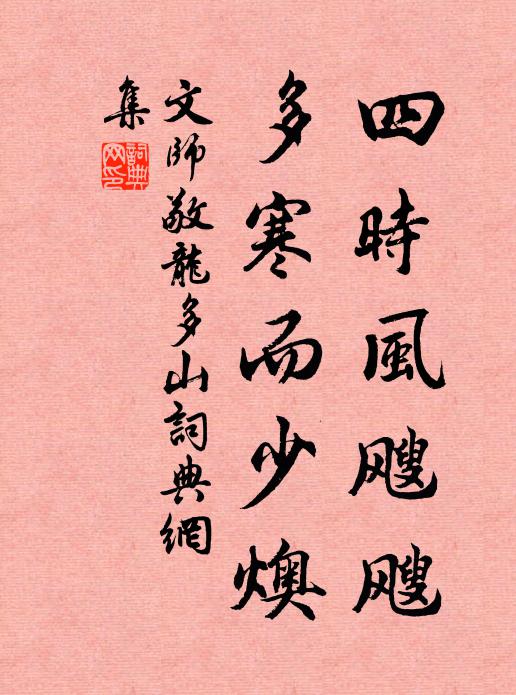 四時風颼颼
多寒而少燠
文師敬龍多山詞典網
集
詞典網印